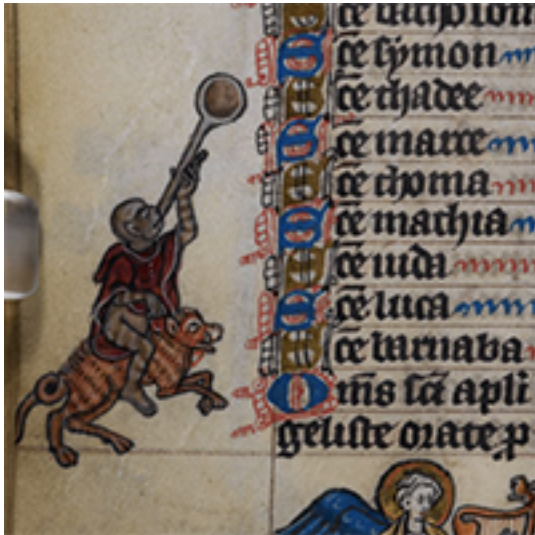 Sce bartholom
Sce symon
Sce thadee
Sce marce
Sce thoma
Sce mathia
Sce iuda
Sce luca
Sce barnaba
Oms sci apli
geliste orate p